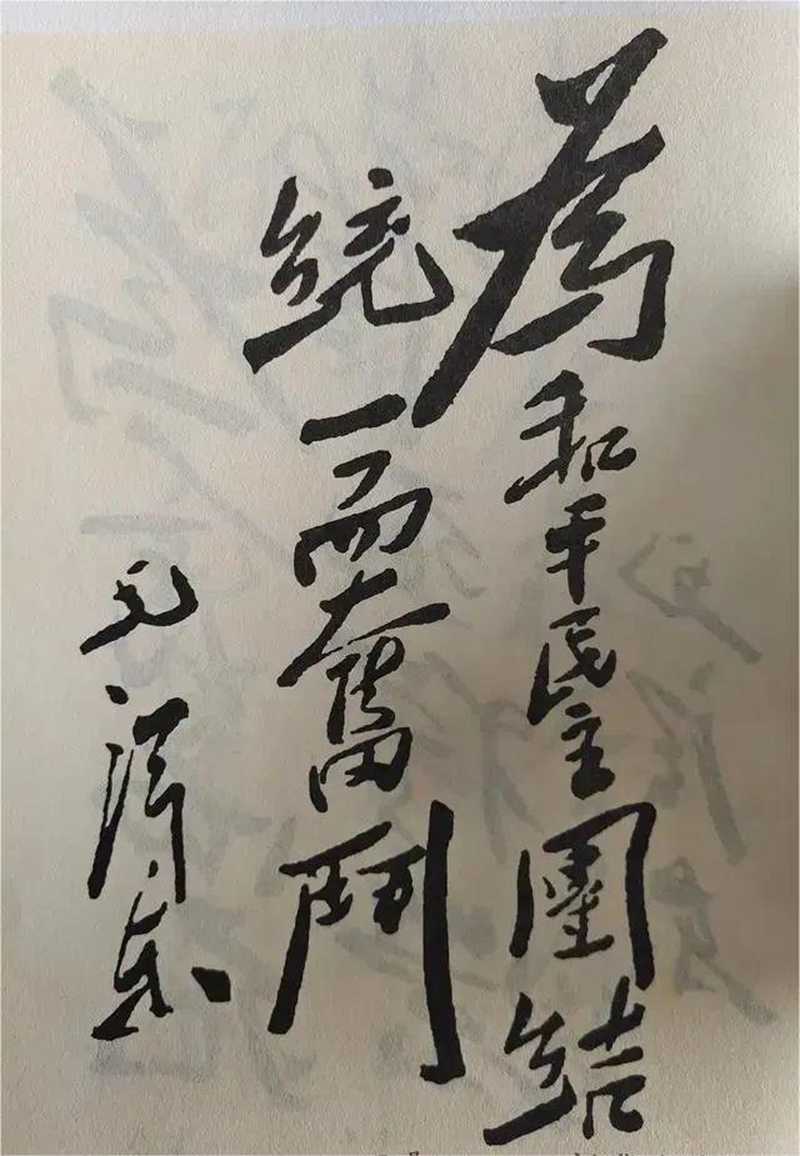 為和平民主團结
統一而奮鬥
毛澤东